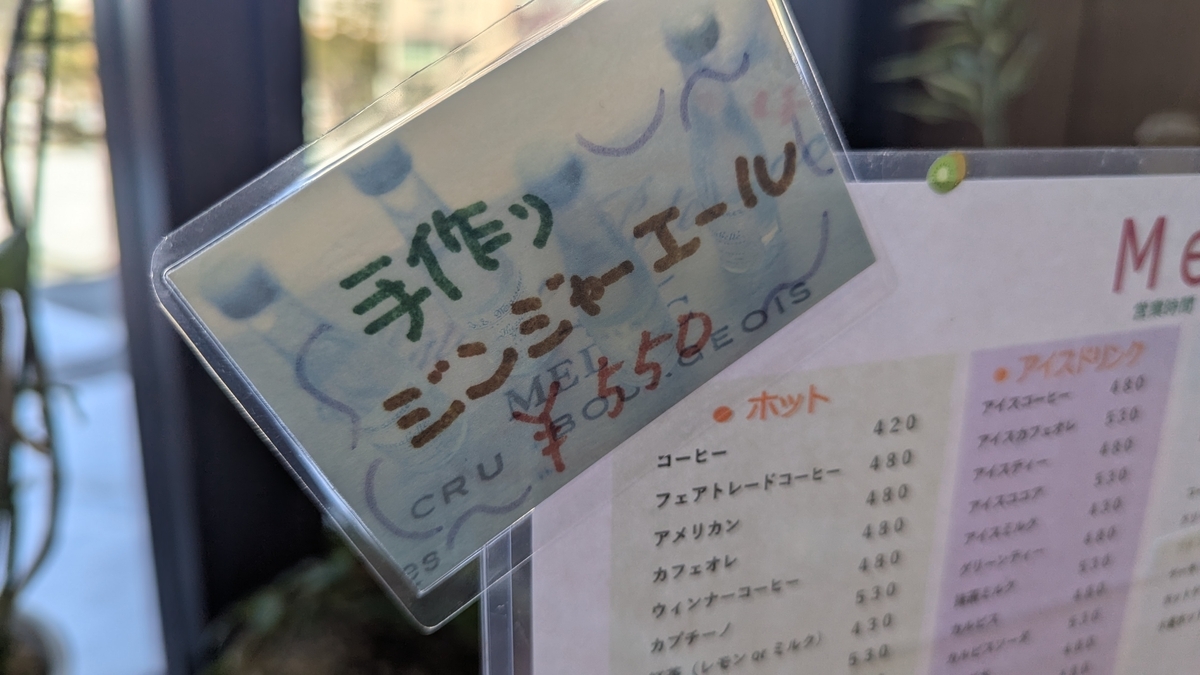 手作り
ジンジャーエール
¥550
CRU
BOLLGEOTS
es
Me
営業時間
● ホット
コーヒー 420
フェアトレードコーヒー 480
アメリカン 480
カフェオレ 480
ウィンナーコーヒー 480
カプチーノ 530
(レモン or ミルク) 430
530
● アイスドリンク
アイスコーヒー 480
アイスカフェオレ 530
アイスティー 480
アイスココア 530
アイスミルク 430
グリーンティー 480
カルピス
カルピスソーダ